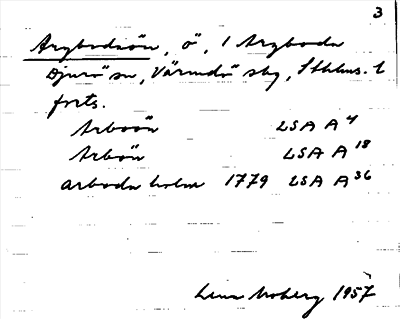 3
Arybodaön, ö, i Aryboda
Djurö sn, Värmdö sbg, Sthlms. l
forts.
Arboön LSA A⁴
Arbön LSA A¹⁸
arboda holm 1779 LSA A³⁶
Lena Moberg 1957